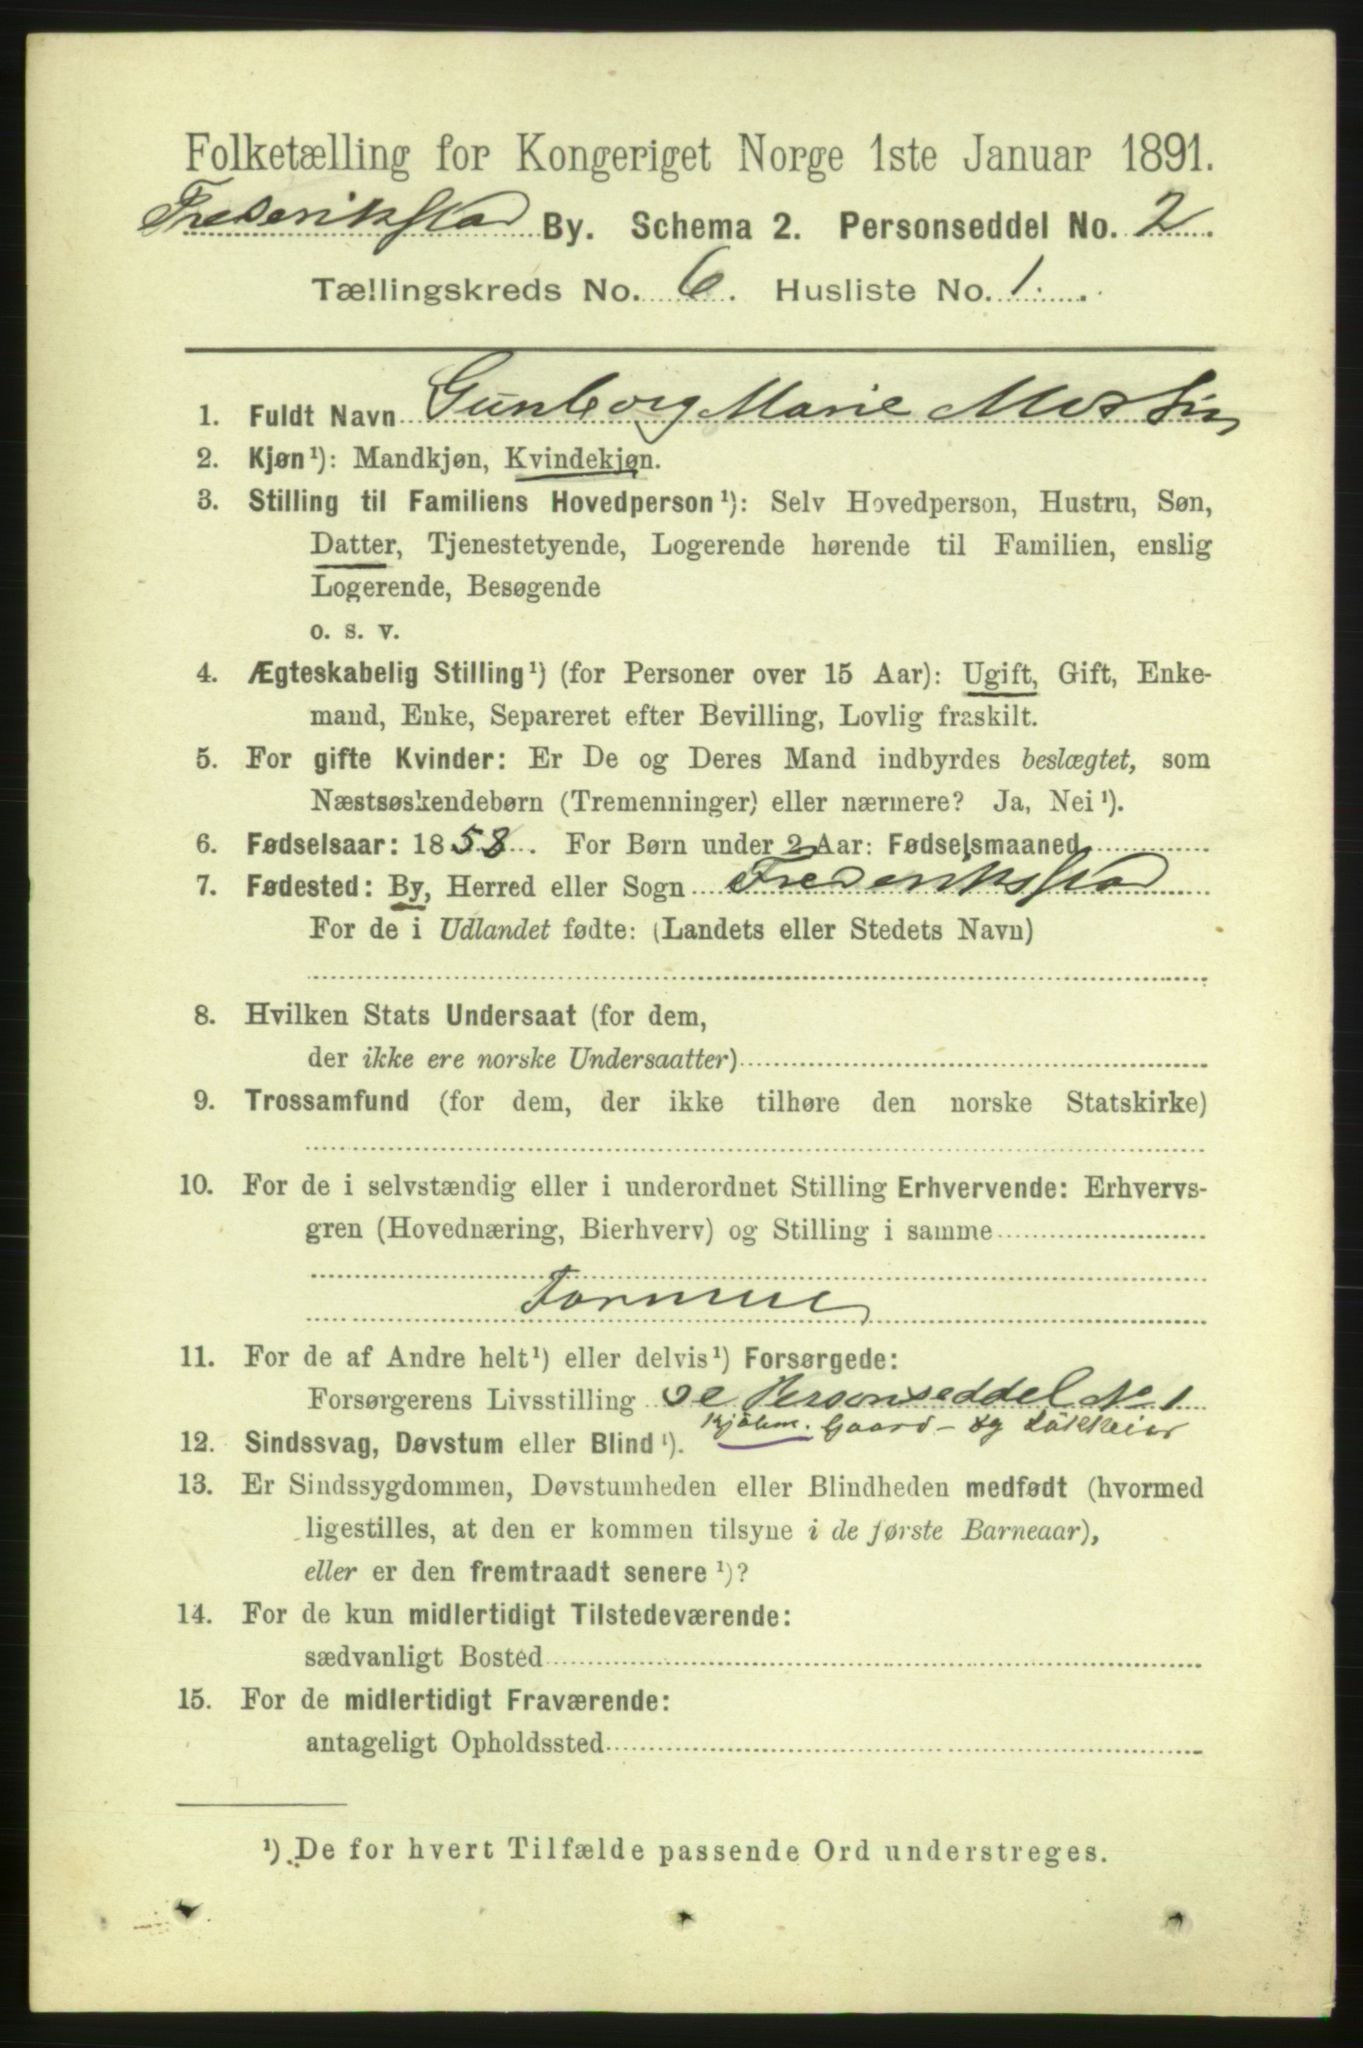 Folketælling for Kongeriget Norge 1ste Januar 1891.
Frederikstad By. Schema 2. Personseddel No. 2.
Tællingskreds No. 6. Husliste No. 1.
1. Fuldt Navn Gunborg Marie
2. Kjøn¹): Mandkjøn, Kvindekjøn.
3. Stilling til Familiens Hovedperson¹): Selv Hovedperson, Hustru, Søn,
Datter, Tjenestetyende, Logerende hørende til Familien, enslig
Logerende, Besøgende
o. s. v.
4. Ægteskabelig Stilling¹) (for Personer over 15 Aar): Ugift, Gift, Enke-
mand, Enke, Separeret efter Bevilling, Lovlig fraskilt.
5. For gifte Kvinder: Er De og Deres Mand indbyrdes beslægtet, som
Næstsøskendebørn (Tremenninger) eller nærmere? Ja, Nei¹).
6. Fødselsaar: 1858. For Børn under 2 Aar: Fødselsmaaned
7. Fødested: By, Herred eller Sogn Frederikstad
For de i Udlandet fødte: (Landets eller Stedets Navn)
8. Hvilken Stats Undersaat (for dem,
der ikke ere norske Undersaatter)
9. Trossamfund (for dem, der ikke tilhøre den norske Statskirke)
10. For de i selvstændig eller i underordnet Stilling Erhvervende: Erhvervs-
gren (Hovednæring, Bierhverv) og Stilling i samme
Formue
11. For de af Andre helt¹) eller delvis¹) Forsørgede:
Forsørgerens Livsstilling se Personseddel No 1
Kjøbm. Gaard- og
12. Sindssvag, Døvstum eller Blind¹).
13. Er Sindssygdommen, Døvstumheden eller Blindheden medfødt (hvormed
ligestilles, at den er kommen tilsyne i de første Barneaar),
eller er den fremtraadt senere¹)?
14. For de kun midlertidigt Tilstedeværende:
sædvanligt Bosted
15. For de midlertidigt Fraværende:
antageligt Opholdssted
¹) De for hvert Tilfælde passende Ord understreges.